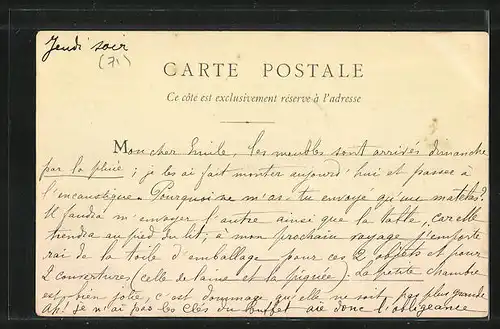 Jeudi soir
(71)
CARTE POSTALE
Ce côté est exclusivement réservé à l'adresse
M
Mon cher Emile, les meubles sont arrivés dimanche
par la pluie ; je les ai fait monter aujourd'hui et passés à
l'encaustique. Pourquoi ne m'as-tu envoyé qu'un matelas?
Il faudra m'envoyer l'autre ainsi que la table, car elle
tiendra au pied du lit, à mon prochain voyage j'emporte
rai de la toile d'emballage pour ces 2 objets et pour
2 couvertures (celle de laine et la piquée). La petite chambre
est bien jolie, c'est dommage qu'elle ne soit pas plus grande
Ah! je n'ai pas les clés du buffet aie donc l'obligeance